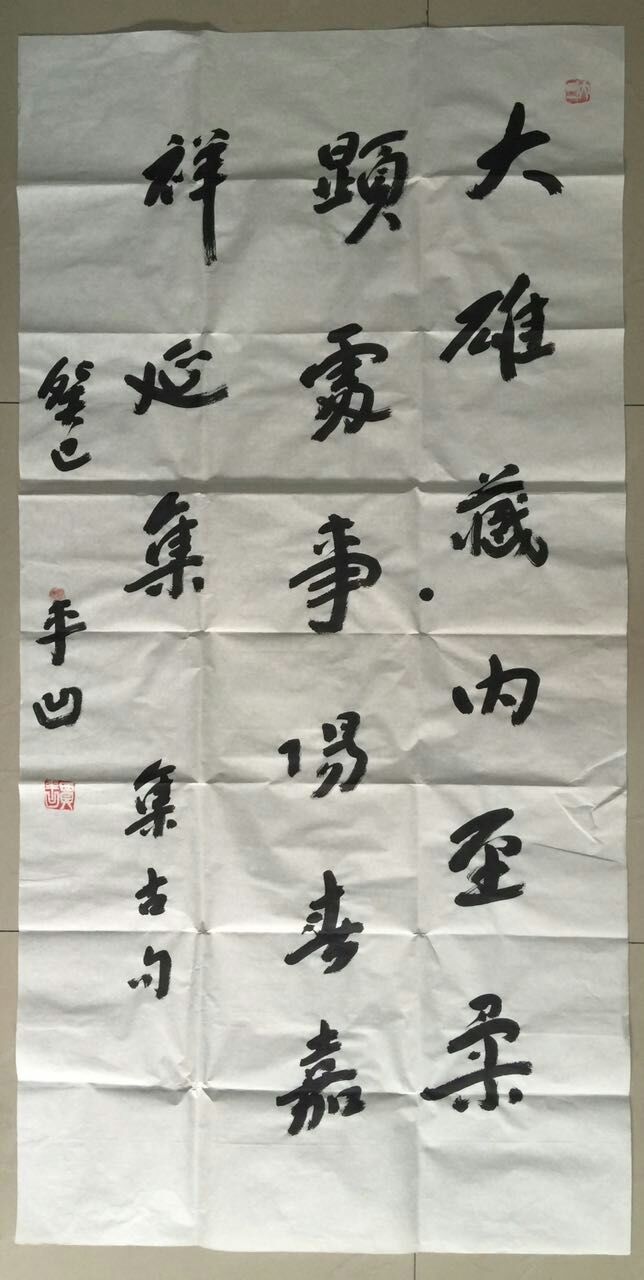 大雄藏内至柔
顕處事陽春嘉
祥延集 集古句
癸巳 平凹